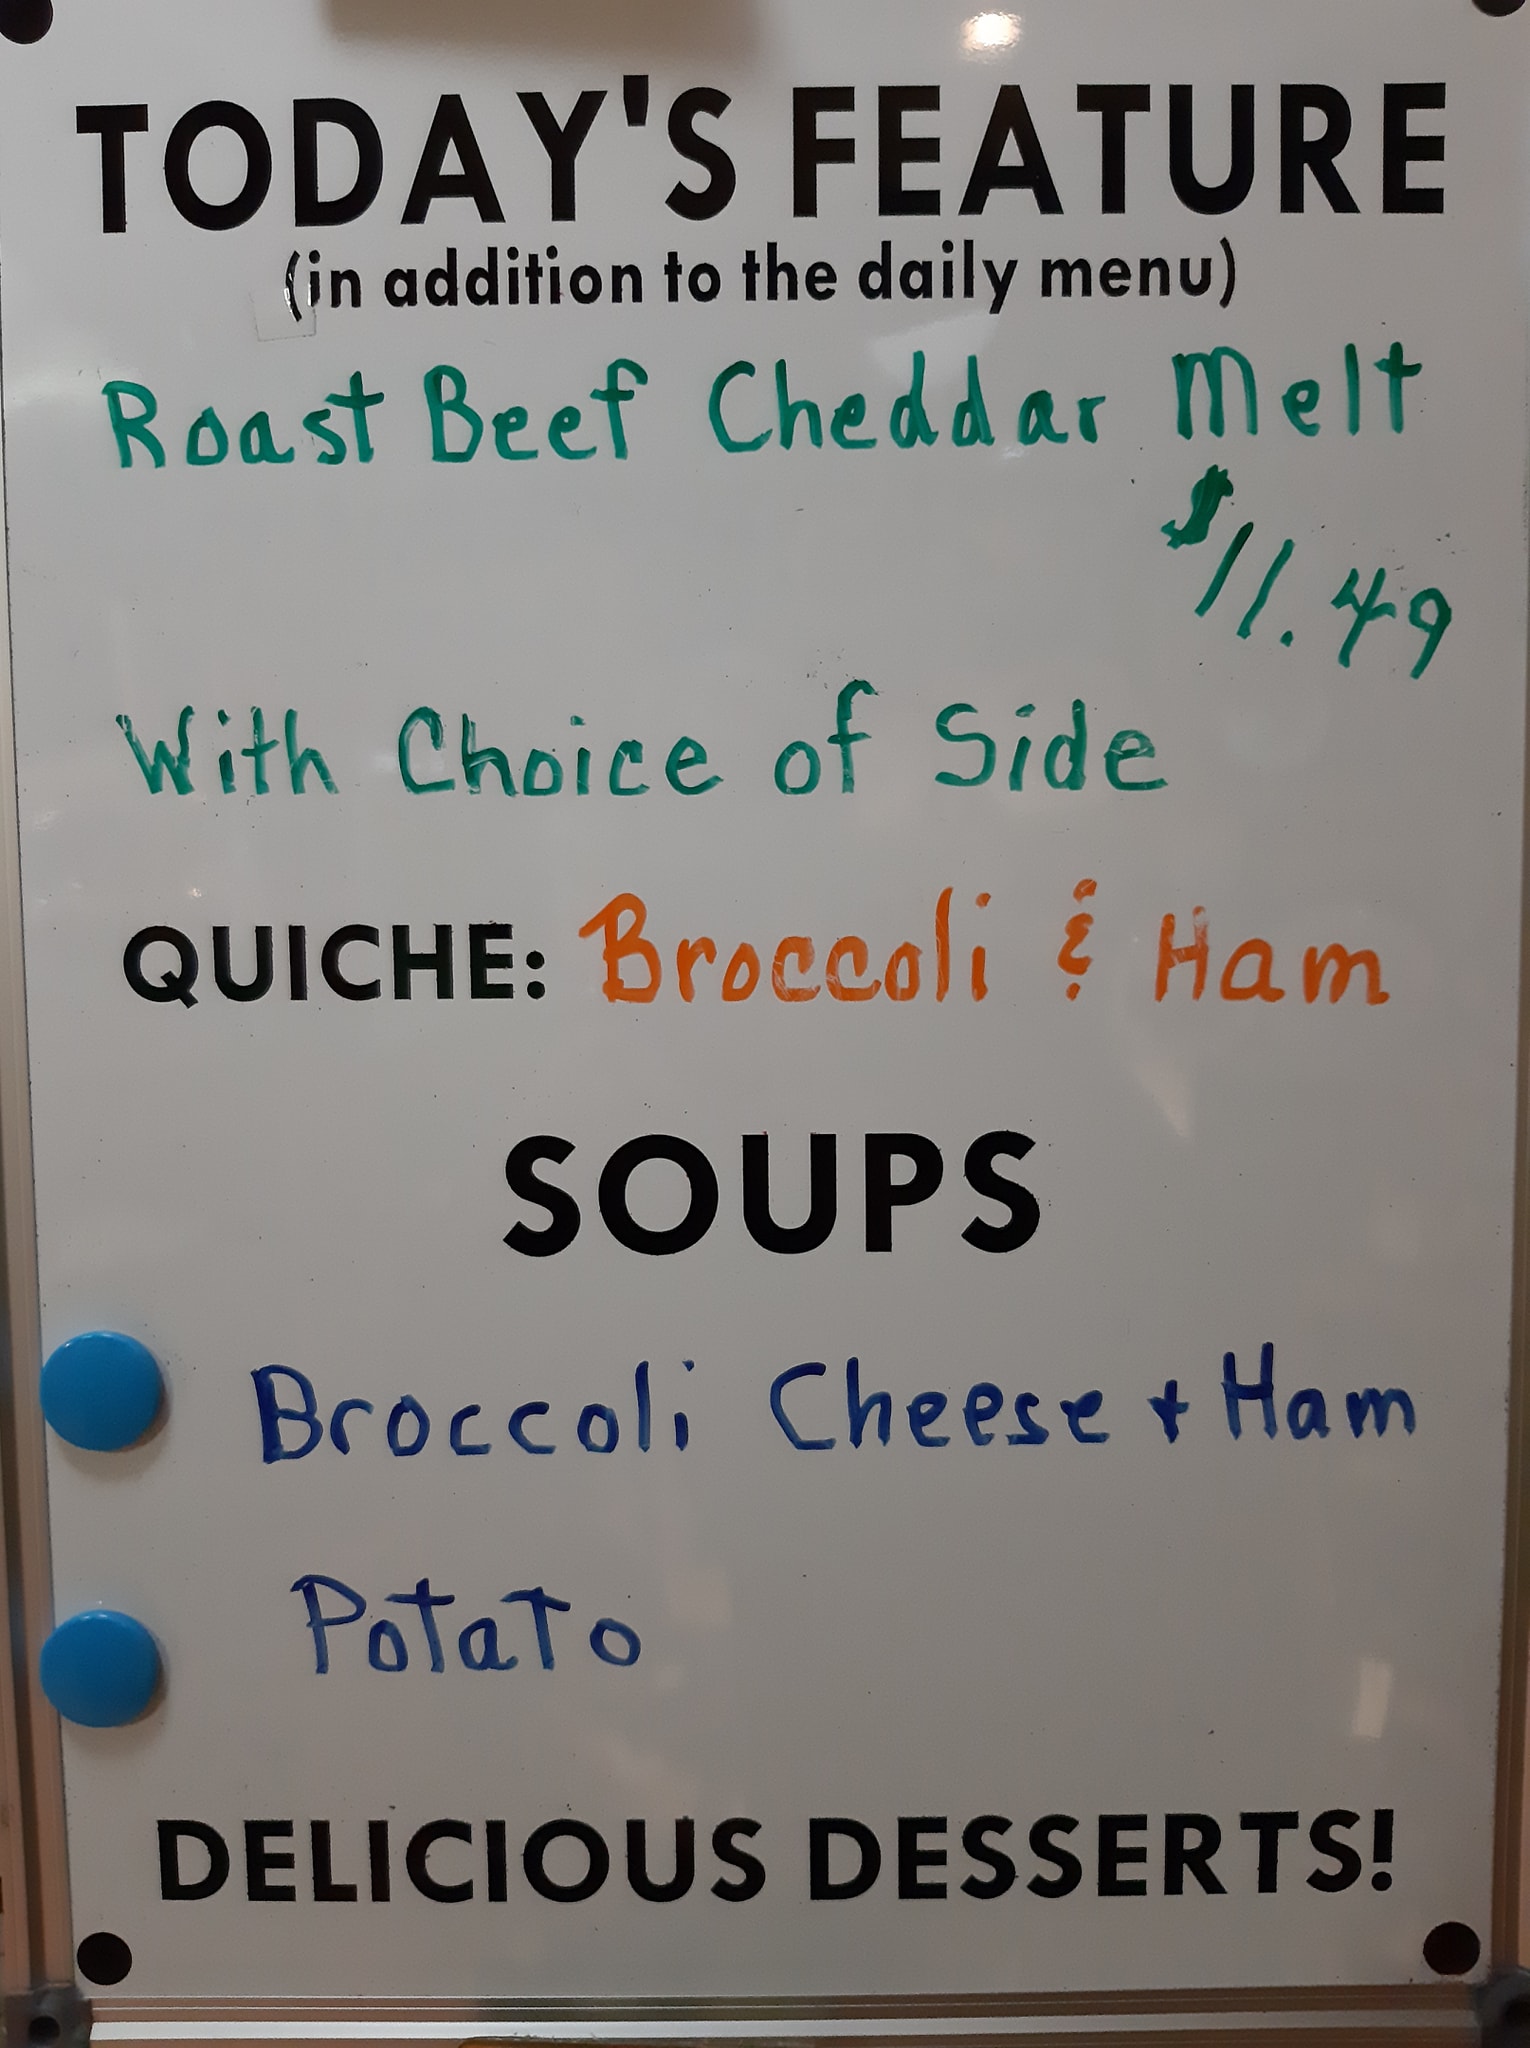 TODAY'S FEATURE
(in addition to the daily menu)
Roast Beef Cheddar Melt
$11.49
With Choice of Side
QUICHE: Broccoli & Ham
SOUPS
Broccoli Cheese + Ham
Potato
DELICIOUS DESSERTS!